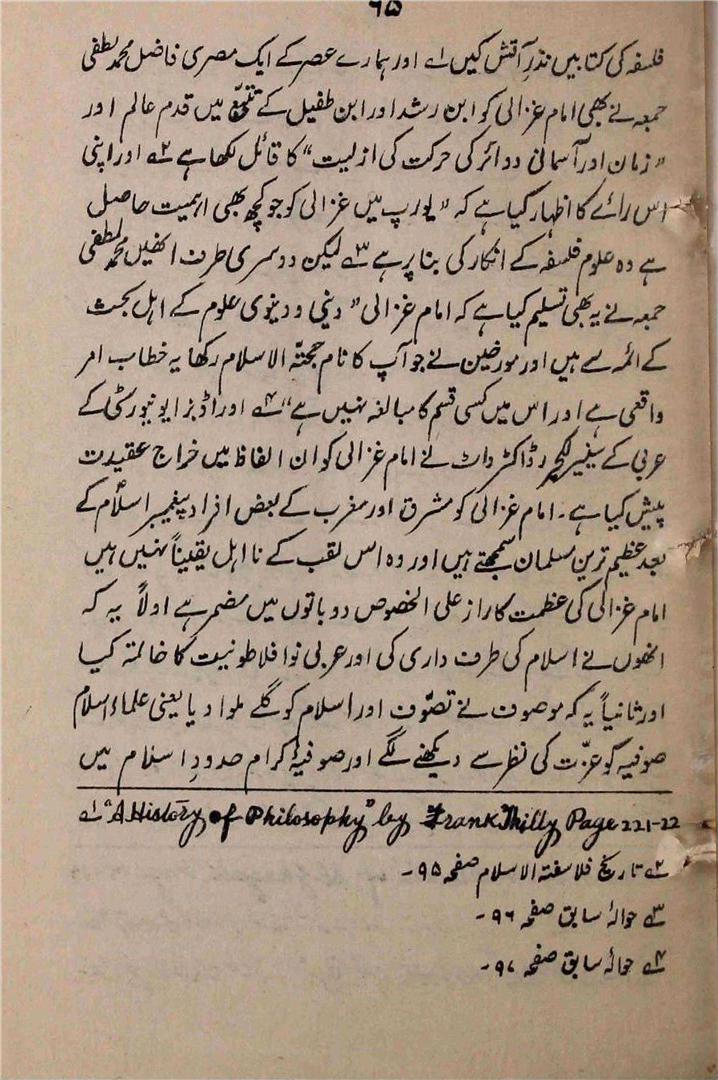 ۹۵
فلسفہ کی کتابیں نذر آتش کیں ۱؎ اور ہمارے عصر کے ایک مصری فاضل محمد لطفی
جمعہ نے بھی امام غزالی کو ابن رشد اور ابن طفیل کے تتبع میں قدم عالم اور
"زمان اور آسمانی دوائر کی حرکت کی ازلیت" کا قائل لکھا ہے ۲؎ اور اپنی
اس رائے کا اظہار کیا ہے کہ "یورپ میں غزالی کو جو کچھ بھی اہمیت حاصل
ہے وہ علوم فلسفہ کے انکار کی بنا پر ہے ۳؎ لیکن دوسری طرف انھیں محمد لطفی
جمعہ نے یہ بھی تسلیم کیا ہے کہ امام غزالی "دینی و دنیوی علوم کے اہل بحث
کے ائمہ سے ہیں اور مورخین نے جو آپ کا نام حجتہ الاسلام رکھا یہ خطاب امر
واقعی ہے اور اس میں کسی قسم کا مبالغہ نہیں ہے" ۴؎ اور اڈنبرا یونیورسٹی کے
عربی کے سینیر لکچرر ڈاکٹر واٹ نے امام غزالی کو ان الفاظ میں خراج عقیدت
پیش کیا ہے۔ امام غزالی کو مشرق اور مغرب کے بعض افراد پیغمبر اسلامؐ کے
بعد عظیم ترین مسلمان سمجھتے ہیں اور وہ اس لقب کے نااہل یقیناً نہیں ہیں
امام غزالی کی عظمت کا راز علی الخصوص دو باتوں میں مضمر ہے اولاً یہ کہ
انھوں نے اسلام کی طرف داری کی اور عربی نوافلاطونیت کا خاتمہ کیا
اور ثانیاً یہ کہ موصوف نے تصوّف اور اسلام کو گلے ملوا دیا یعنی علماء اسلام
صوفیہ کو عزّت کی نظر سے دیکھنے لگے اور صوفیۂ کرام حدودِ اسلام میں
۱؎ "A History of Philosophy" by Frank Thilly Page 221-22
۲؎ تاریخ فلاسفتہ الاسلام صفحہ ۹۵۔
۳؎ حوالۂ سابق صفحہ ۹۶۔
۴؎ حوالۂ سابق صفحہ ۹۷۔